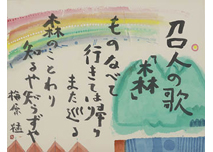 召人の歌
「森」
ものなべて
行きては帰り
また巡る
森のことわり
知るや知らずや
梅原 猛